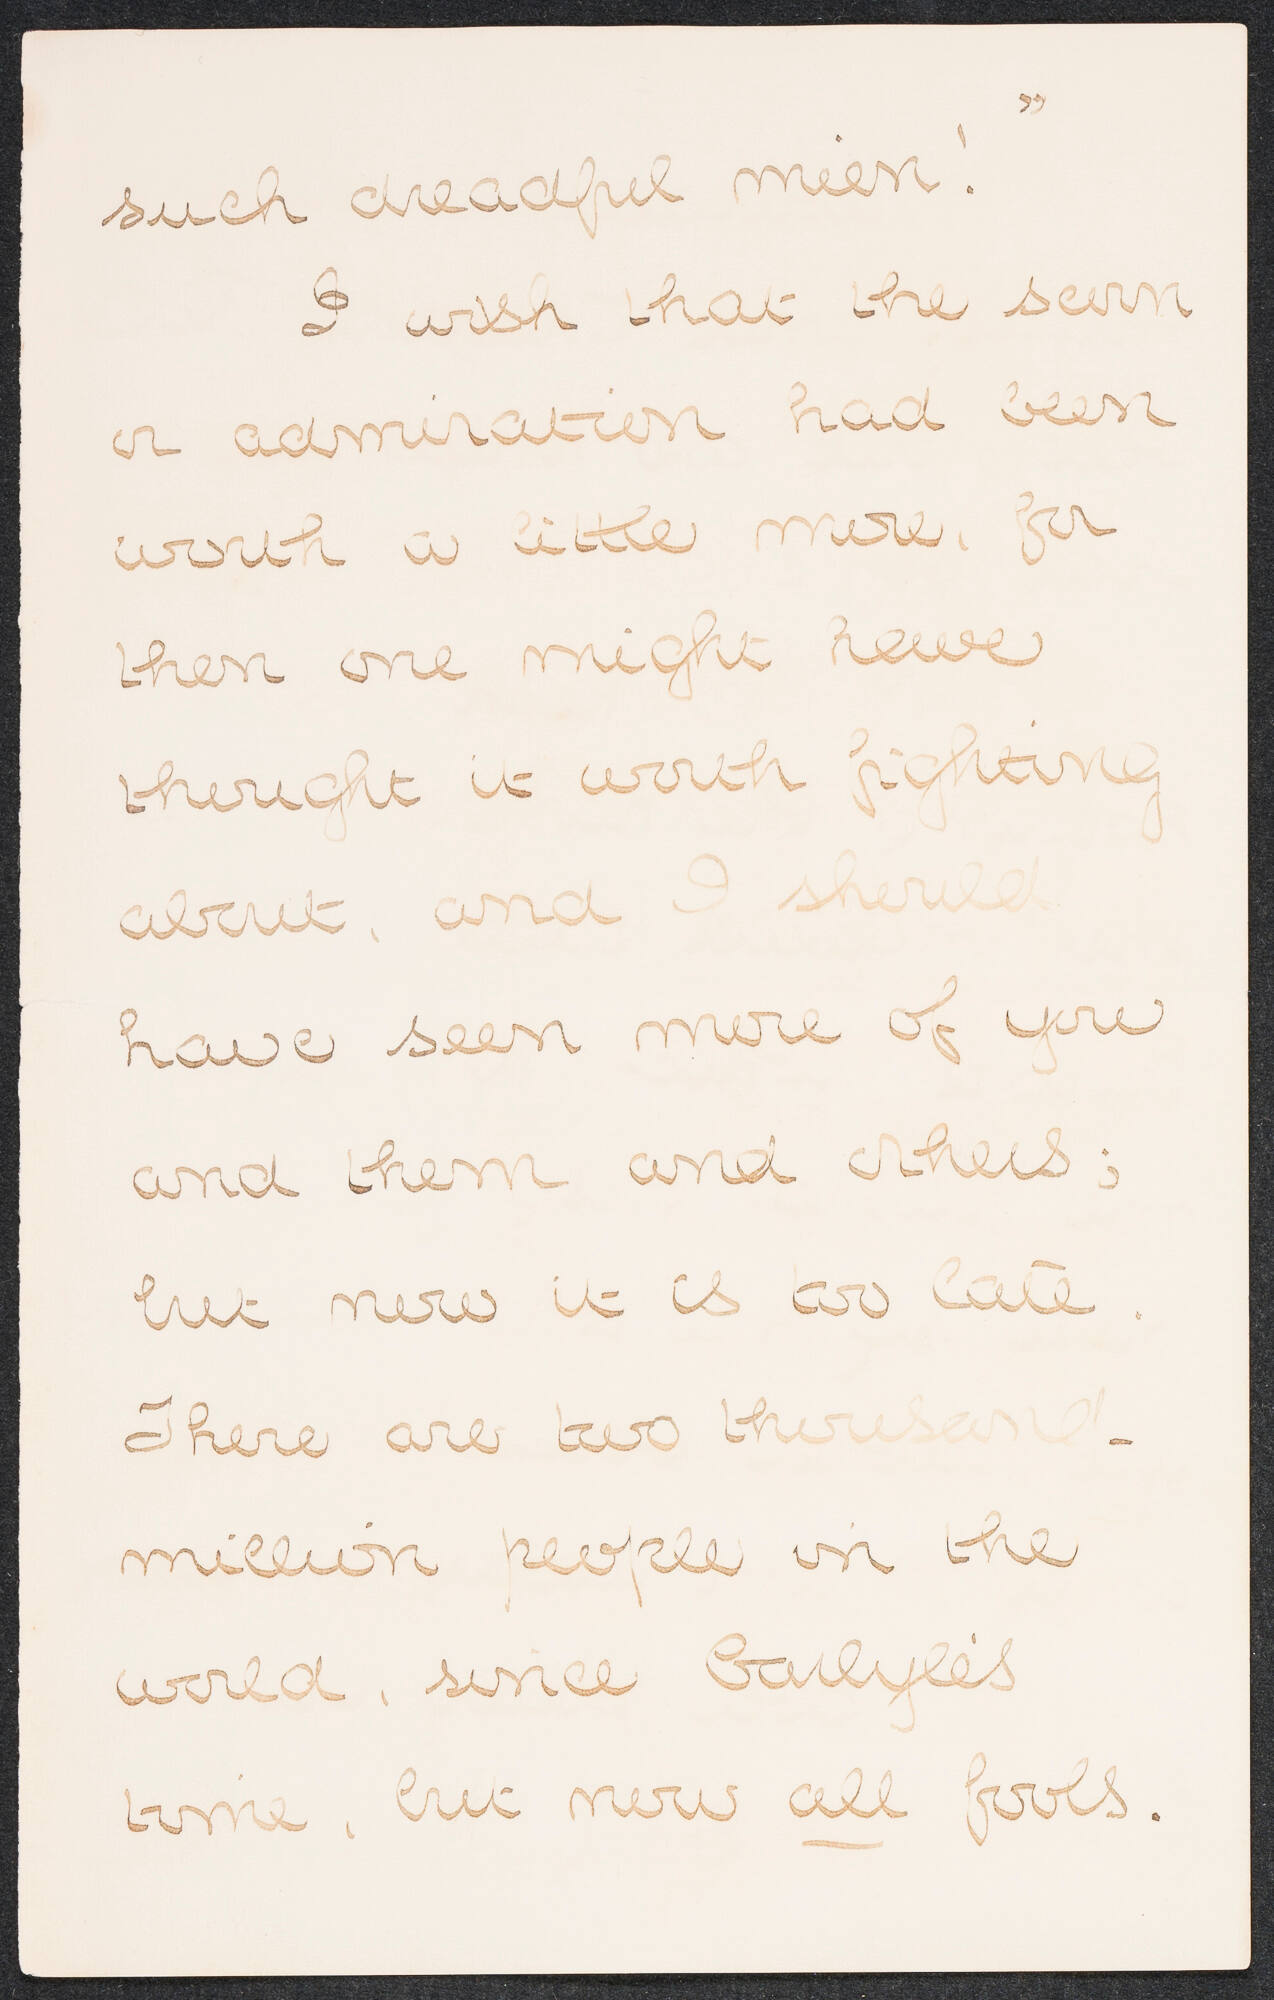 such dreadful mien!"
I wish that the scorn
or admiration had been
worth a little more, for
then one might have
thought it worth fighting
about, and I should
have seen more of you
and them and others;
but now it is too late.
There are two thousand-
million people in the
world, since Carlyle's
time, but now all fools.